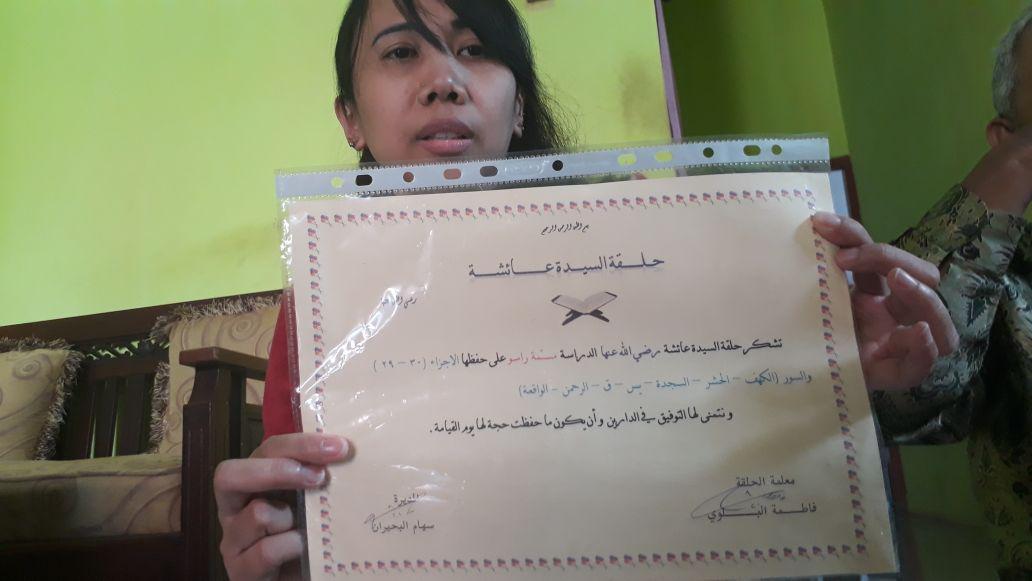 حلقة السيدة عائشة
تشكر حلقة السيدة عائشة رضي الله عنها الدراسة مسنة راسو على حفظها الاجزاء (٣٠ – ٢٩)
والسور (الكهف – الحشر – السجدة – يس – ق – الرحمن – الواقعة)
ونتمنى لها التوفيق في الدارين وأن يكون ما حفظت حجة لها يوم القيامة.
معلمة الحلقة
فاطمة البلوي
المديرة
سهام البحيران